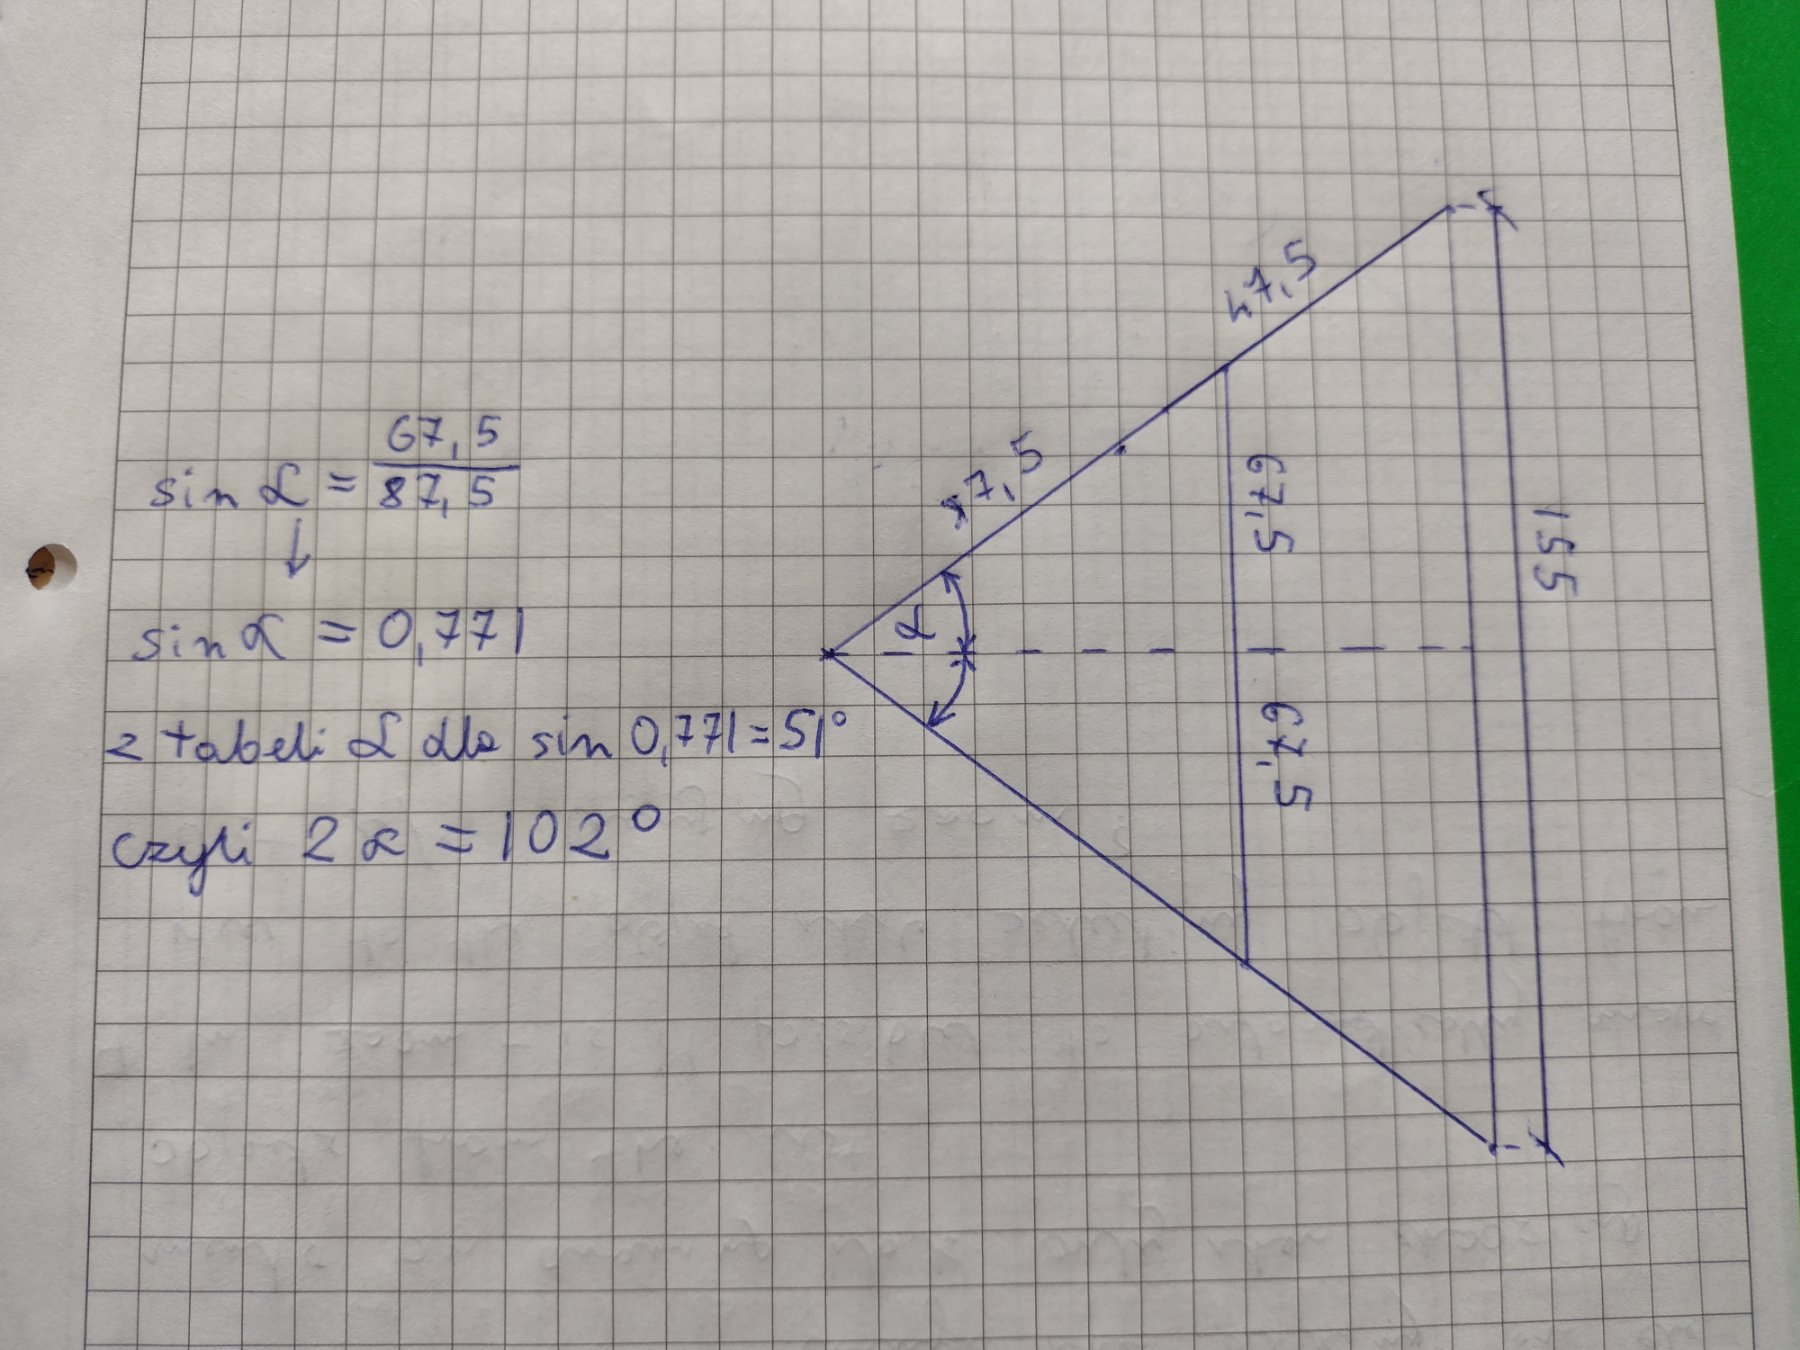 67,5
sin α = 87,5
↓
sin α = 0,771
z tabeli α dla sin 0,771 = 51°
czyli 2 α = 102°
47,5
87,5
α
67,5
67,5
155